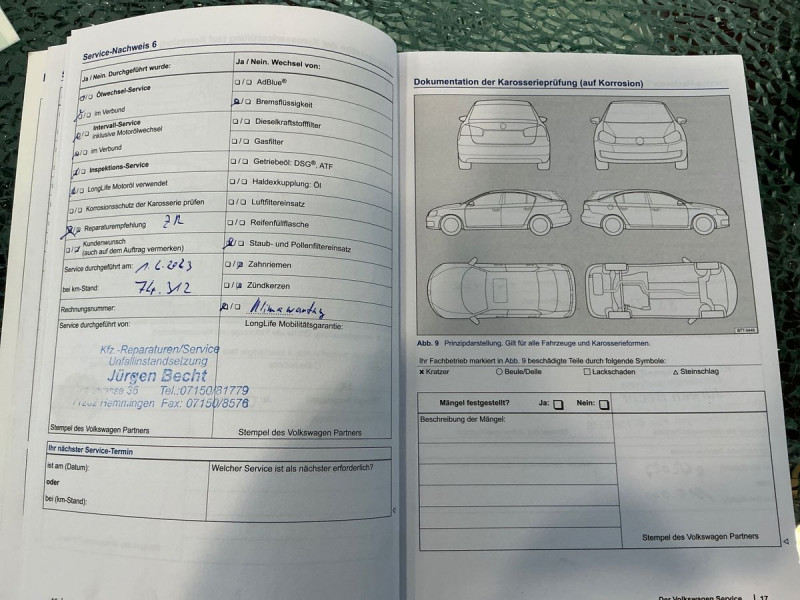 Service-Nachweis 6
Ja / Nein. Durchgeführt wurde:
Ölwechsel-Service
im Verbund
Intervall-Service
inklusive Motorölwechsel
im Verbund
Inspektions-Service
LongLife Motoröl verwendet
Korrosionsschutz der Karosserie prüfen
Reparaturempfehlung
Kundenwunsch
(auch auf dem Auftrag vermerken)
Service durchgeführt am:
bei km-Stand: 74.312
Rechnungsnummer:
Service durchgeführt von:
Kfz.-Reparaturen/Service
Unfallinstandsetzung
Jürgen Becht
Tel.:07150/81779
Hemmingen Fax: 07150/8576
Stempel des Volkswagen Partners
Ja / Nein. Wechsel von:
AdBlue®
Bremsflüssigkeit
Dieselkraftstofffilter
Gasfilter
Getriebeöl: DSG®, ATF
Haldexkupplung: Öl
Luftfiltereinsatz
Reifenfüllflasche
Staub- und Pollenfiltereinsatz
Zahnriemen
Zündkerzen
Klimawartung
LongLife Mobilitätsgarantie:
Stempel des Volkswagen Partners
Ihr nächster Service-Termin
ist am (Datum):
oder
bei (km-Stand):
Welcher Service ist als nächster erforderlich?
Dokumentation der Karosserieprüfung (auf Korrosion)
Abb. 9 Prinzipdarstellung. Gilt für alle Fahrzeuge und Karosserieformen.
Ihr Fachbetrieb markiert in Abb. 9 beschädigte Teile durch folgende Symbole:
× Kratzer ○ Beule/Delle □ Lackschaden △ Steinschlag
Mängel festgestellt? Ja: □ Nein: □
Beschreibung der Mängel:
Stempel des Volkswagen Partners
Der Volkswagen Service 17